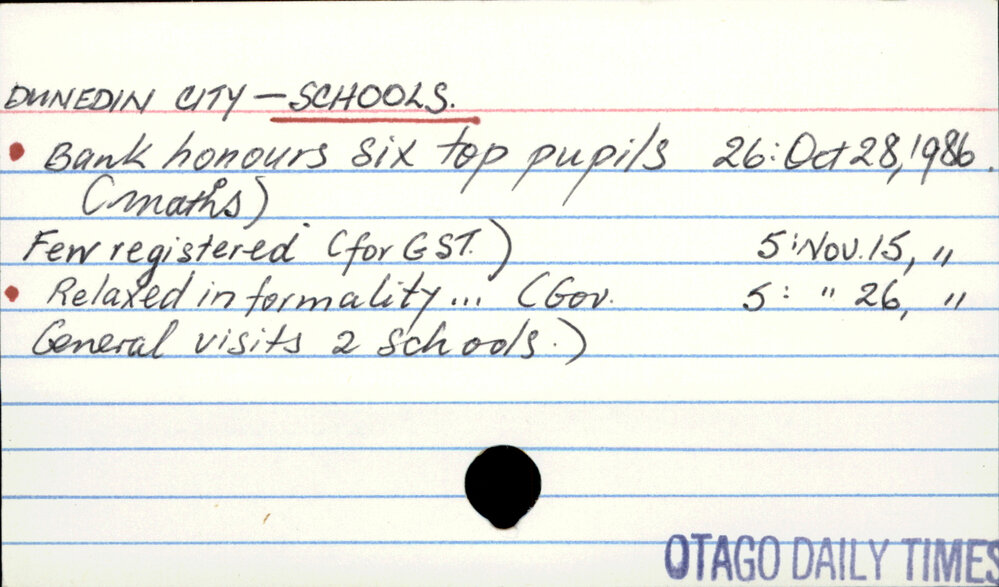 DUNEDIN CITY — SCHOOLS.
• Bank honours six top pupils 26: Oct 28, 1986.
(maths)
Few registered (for GST.) 5: Nov. 15, "
• Relaxed informality... (Gov. 5: " 26, "
General visits 2 schools.)
OTAGO DAILY TIMES